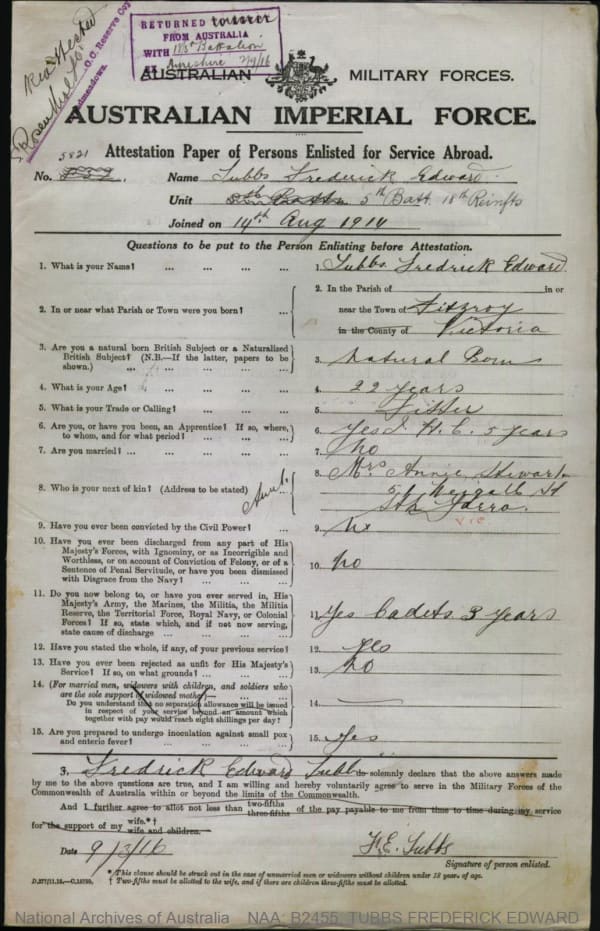 RETURNED
FROM AUSTRALIA
WITH Battalion
AT Ayrshire
Reserve
AUSTRALIAN MILITARY FORCES.
AUSTRALIAN IMPERIAL FORCE.
Attestation Paper of Persons Enlisted for Service Abroad.
5821
No. Name Tubbs Frederick Edward
Unit 5th Batt. 18th Reinfts
Joined on 14th Aug 1914
Questions to be put to the Person Enlisting before Attestation.
1. What is your Name? ... ... ... ... 1. Tubbs Fredrick Edward
2. In or near what Parish or Town were you born? ... 2. In the Parish of in or
near the Town of Fitzroy
in the County of Victoria
3. Are you a natural born British Subject or a Naturalized
British Subject? (N.B.—If the latter, papers to be
shown.) ... ... ... ... 3. Natural Born
4. What is your Age? ... ... ... 4. 22 years
5. What is your Trade or Calling? ... ... ... 5. Fitter
6. Are you, or have you been, an Apprentice? If so, where,
to whom, and for what period? ... ... ... 6. Yes 5 years
7. Are you married? ... ... ... ... 7. No
8. Who is your next of kin? (Address to be stated) Aunt. 8. Mrs Annie Stewart
St
Sth Yarra.
VIC
9. Have you ever been convicted by the Civil Power? ... 9. No
10. Have you ever been discharged from any part of His
Majesty's Forces, with Ignominy, or as Incorrigible and
Worthless, or on account of Conviction of Felony, or of a
Sentence of Penal Servitude, or have you been dismissed
with Disgrace from the Navy? ... ... ... 10. No
11. Do you now belong to, or have you ever served in, His
Majesty's Army, the Marines, the Militia, the Militia
Reserve, the Territorial Force, Royal Navy, or Colonial
Forces? If so, state which, and if not now serving,
state cause of discharge ... ... ... 11. Yes Cadets 3 years
12. Have you stated the whole, if any, of your previous service? 12. Yes
13. Have you ever been rejected as unfit for His Majesty's
Service? If so, on what grounds? ... ... 13. No
14. (For married men, widowers with children, and soldiers who
are the sole support of widowed mother)—
Do you understand that no separation allowance will be issued
in respect of your service beyond an amount which
together with pay would reach eight shillings per day? 14. —
15. Are you prepared to undergo inoculation against small pox
and enteric fever? ... ... ... ... 15. Yes
I, Fredrick Edward Tubbs do solemnly declare that the above answers made
by me to the above questions are true, and I am willing and hereby voluntarily agree to serve in the Military Forces of the
Commonwealth of Australia within or beyond the limits of the Commonwealth.
And I further agree to allot not less than two-fifths three-fifths of the pay payable to me from time to time during my service
for the support of my wife.*† wife and children.
Date 9/3/16 F.E. Tubbs
Signature of person enlisted.
* This clause should be struck out in the case of unmarried men or widowers without children under 18 years of age.
† Two-fifths must be allotted to the wife, and if there are children three-fifths must be allotted.
National Archives of Australia NAA: B2455, TUBBS FREDERICK EDWARD